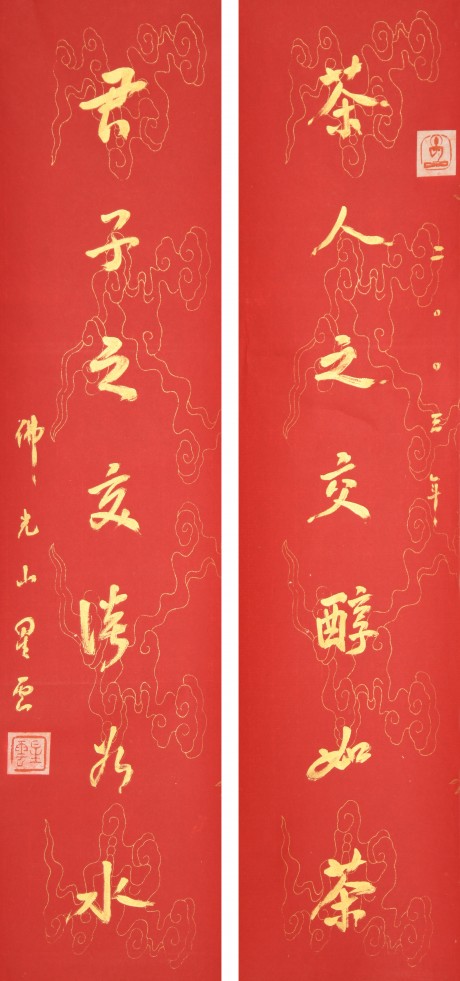 茶人之交醇如茶
二〇〇三年
君子之交淡若水
佛光山星雲
星雲